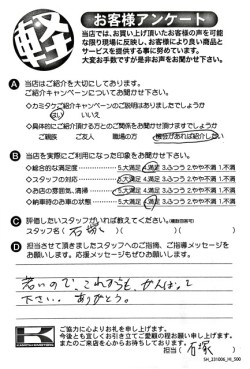 軽
お客様アンケート
当店では、お買い上げ頂いたお客様の声を可能
な限り現場に反映し、お客様により良い商品と
サービスを提供する事に努めています。
大変お手数ですが是非お声をお聞かせ下さい。
A 当店はご紹介を大切にしております。
ご紹介キャンペーンについてお聞かせ下さい。
◇カミタケご紹介キャンペーンのご説明はありましたでしょうか
はい いいえ
◇具体的にご紹介頂ける方とのご関係をお聞かせ頂けますでしょうか
ご親族 ご友人 職場の方 機会があれば紹介したい
B 当店を実際にご利用になった印象をお聞かせ下さい。
◇総合的な満足度 5.大満足 4.満足 3.ふつう 2.やや不満 1.不満
◇スタッフの対応 5.大満足 4.満足 3.ふつう 2.やや不満 1.不満
◇お店の雰囲気、清掃 5.大満足 4.満足 3.ふつう 2.やや不満 1.不満
◇納車時のお車の状態 5.大満足 4.満足 3.ふつう 2.やや不満 1.不満
C 評価したいスタッフがいれば教えてください。(複数回答可)
スタッフ名( 石塚 )
D 担当させて頂きましたスタッフへのご指摘、ご指導メッセージを
お願いします。応援メッセージもぜひお願いします。
若いので、これからも、がんばって
下さい。ありがとう。
ご協力に心よりお礼を申し上げます。
今後とも宜しくお引き立てご愛顧の程お願い申し上げます。
またのご来店を心からお待ちしております。
担当( 石塚 )
SH_231006_HI_500